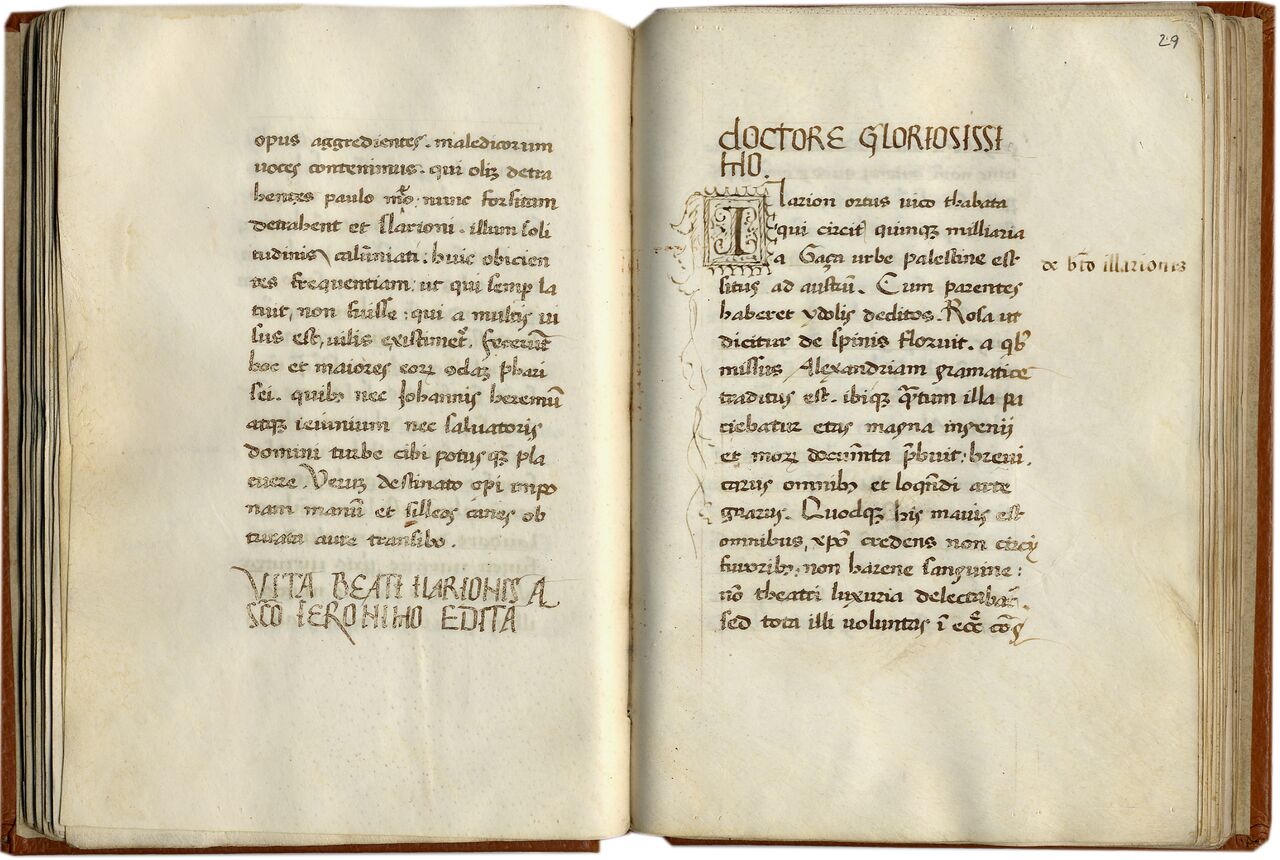 opus aggredientes. maledicorum
uoces contenimus. qui oliʒ detra
hentes paulo mẽo: nunc forsitam
detrahent et Ilarioni. illum soli
tudinis calũniati: huic obicien
tes frequentiam: ut qui semp la
tuit, non fuisse: qui a multis ui
sus est, uilis existimet̃. fecerũt
hoc et maiores eoꝝ odaʒ phari
sei. quibʒ nec Johannis heremũ
atqʒ ieiunium nec saluatoris
domini turbe cibi potusqʒ pla
cuere. Veruʒ destinato opi impo
nam manũ et silleos canes ob
turata aure transibo.
VITA BEATI ILARIONIS A
SCO IERONIMO EDITA
29
dOCTORE GLORIOSISSI
MO.
Ilarion ortus uico thabata
qui circit̃ quinqʒ milliaria
a Gaça urbe palestine est
de bto illarionis
situs ad austrũ. Cum parentes
haberet ydolis deditos. Rosa ut
dicitur de spinis floruit. a qbʒ
missus Alexandriam gramatice
traditus est. ibiqʒ q̃tum illa pa
tiebatur etas magna ingenii
et moꝝ docum̃ta p̃buit: breui.
carus omnibʒ et loqñdi arte
gnarus. Quodqʒ his maius est
omnibus, xp̃o credens non circꝝ
furoribʒ: non harene sanguine:
nõ theatri luxuria delectabat̃.
sed tota illi voluntas ĩ ecc̃e